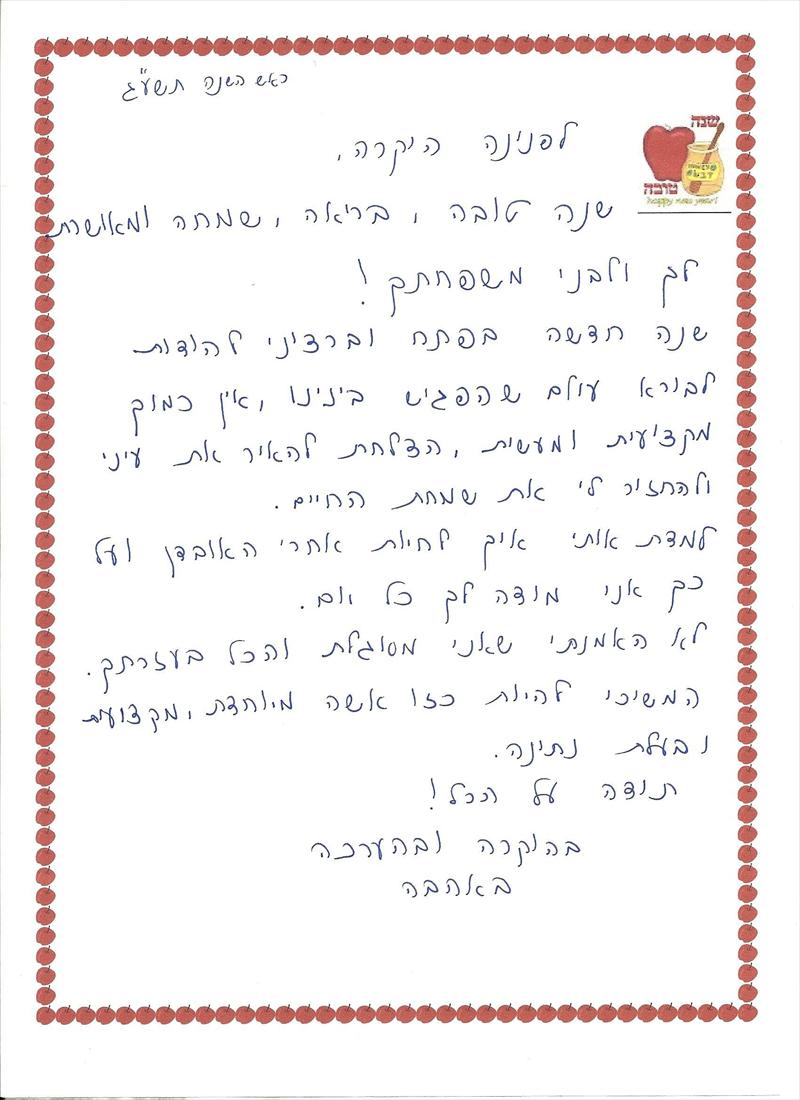 ראש השנה תשע"ג
שנה
טובה
happy new year!
לפנינה היקרה,
שנה טובה, בריאה, שמחה ומאושרת
לך ולבני משפחתך!
שנה חדשה בפתח וברציני להודות
לבורא עולם שהפגיש בינינו, אין כמוך
מקצועית ומעשית, הצלחת להאיר את עיני
ולהחזיר לי את שמחת החיים.
למדת אותי איך לחיות אחרי האובדן ועל
כך אני מודה לך כל יום.
לא האמנתי שאני מסוגלת והכל בעזרתך.
המשיכי להיות כזו אשה מיוחדת, מקצועית
ובעלת נתינה.
תודה על הכל!
בהוקרה ובהערכה
באהבה